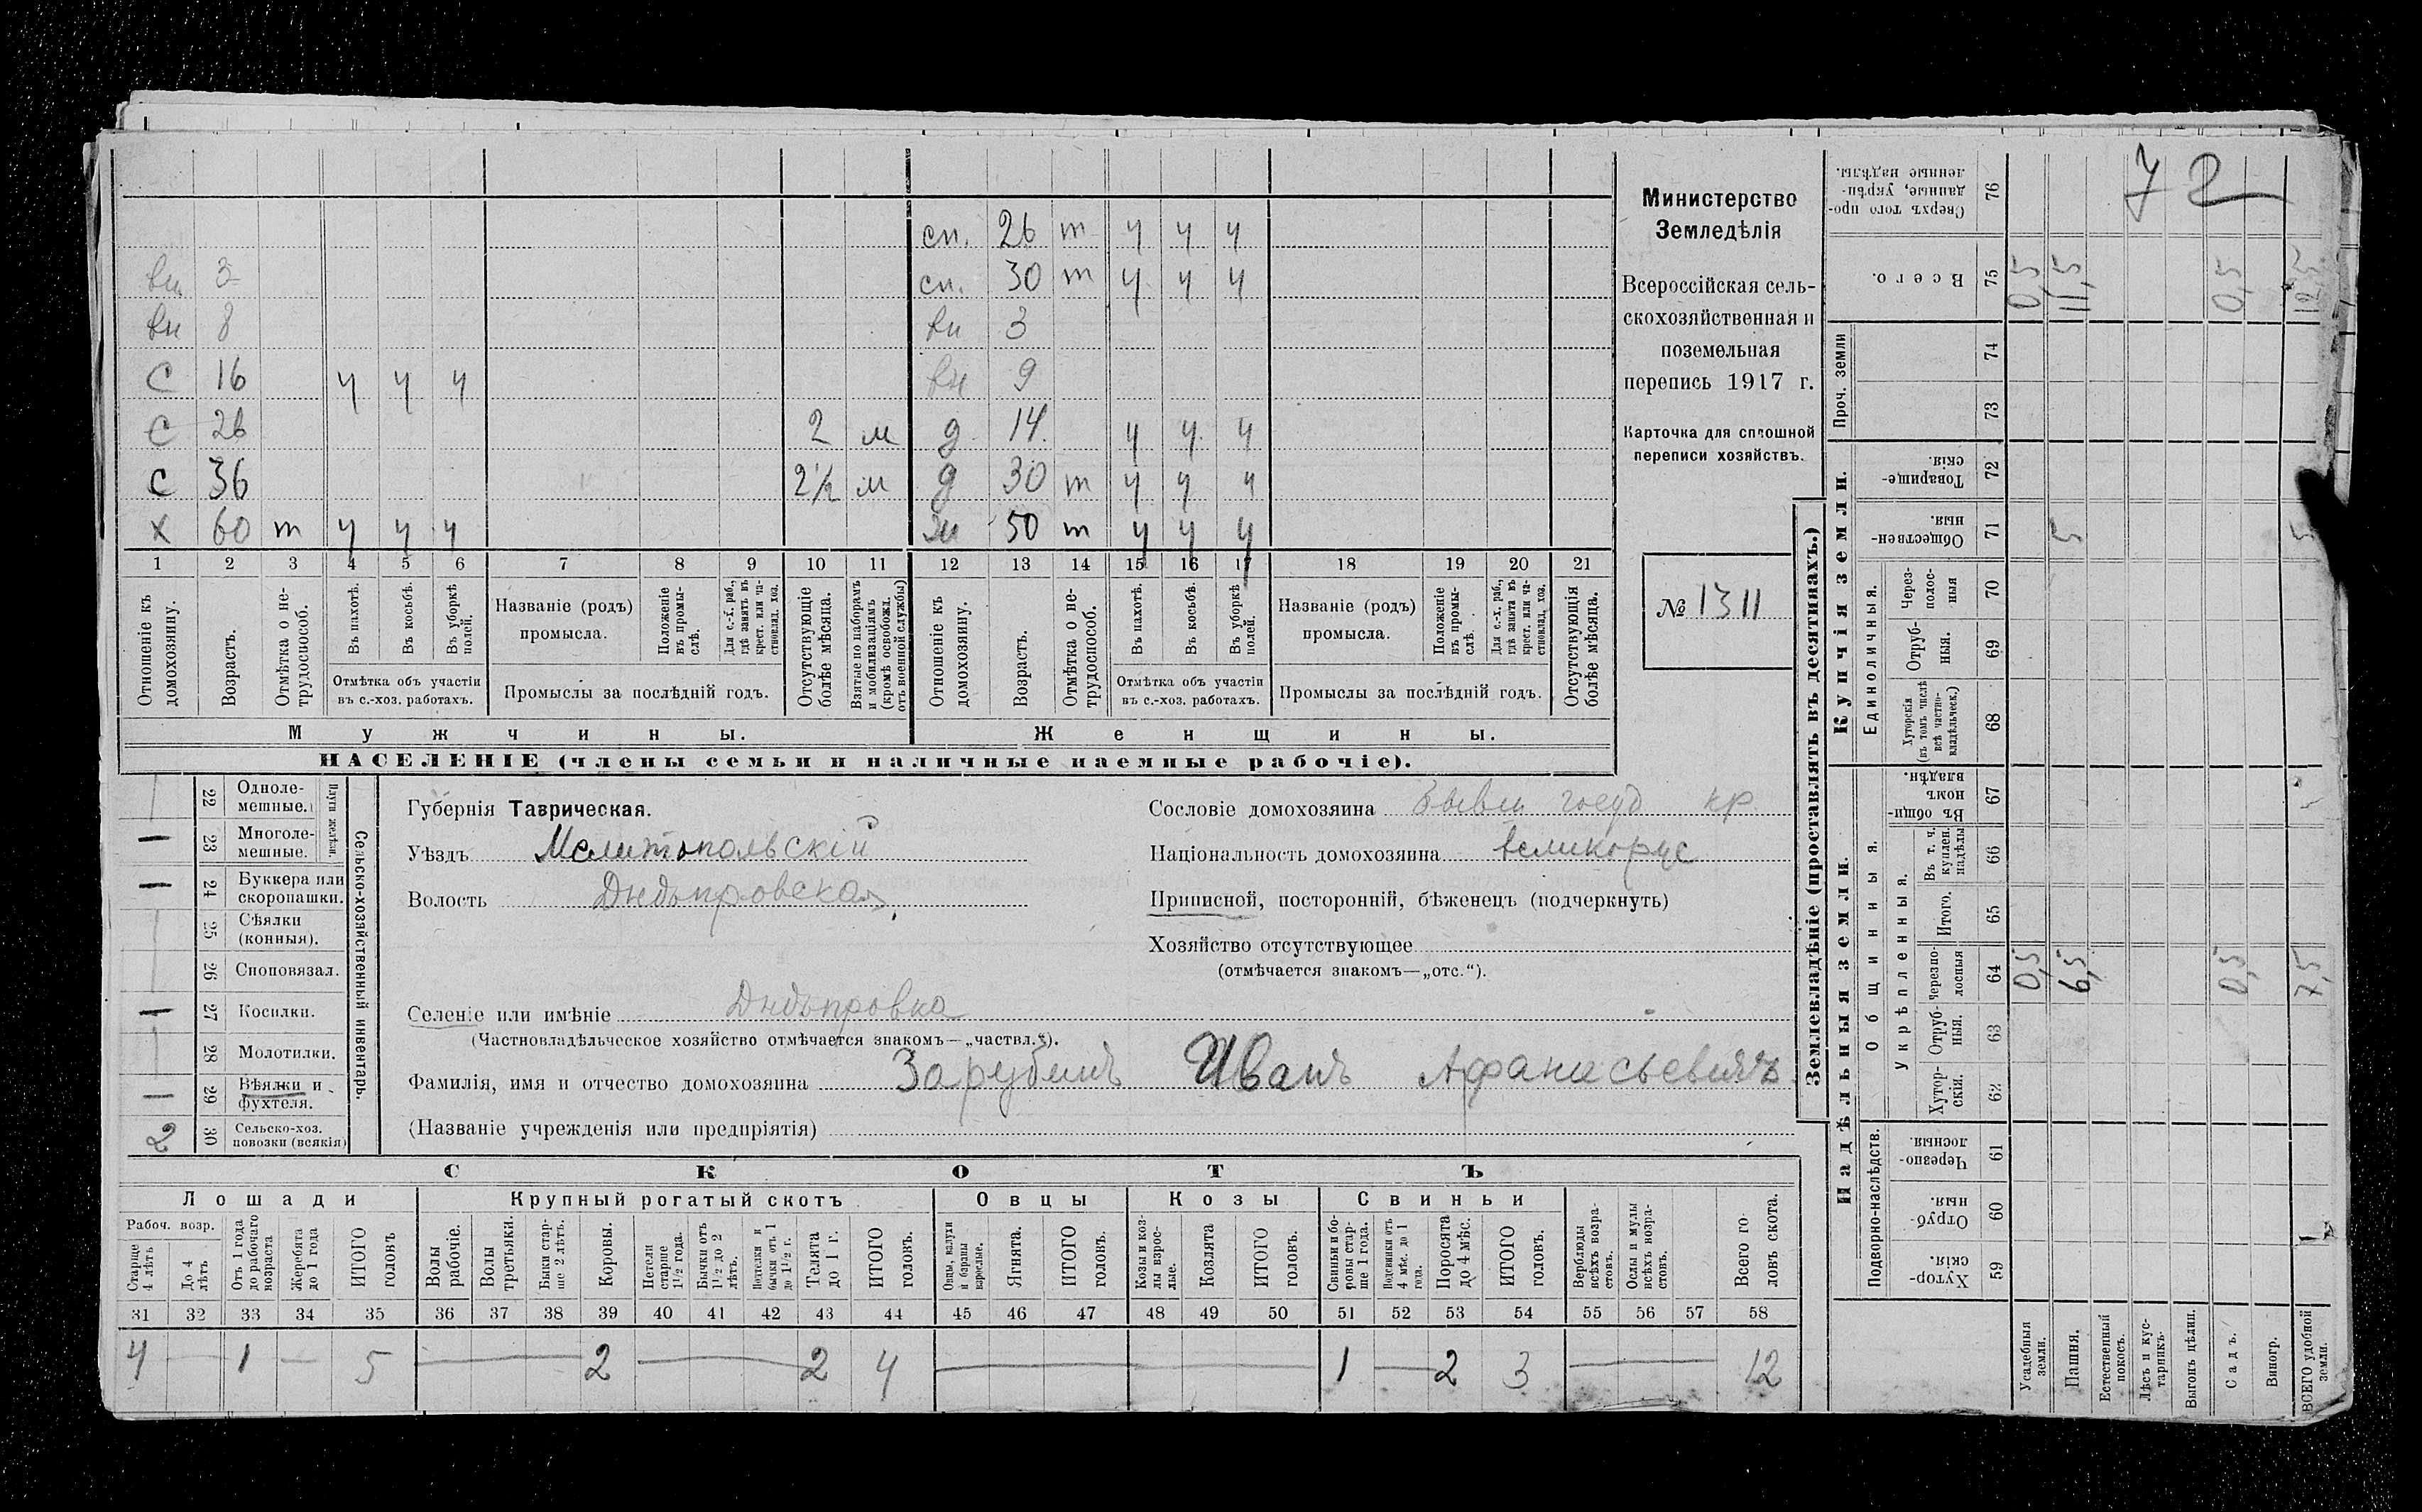 72
Министерство
Земледѣлія
Всероссійская сель-
скохозяйственная и
поземельная
перепись 1917 г.
Карточка для сплошной
переписи хозяйствъ.
№ 1311
сп. 26 т ч ч ч
вн 3 сп. 30 т ч ч ч
вн 8 вн 3
С 16 ч ч ч вн 9
С 26 2 м д 14. ч ч ч
С 36 2½ м д 30 т ч ч ч
Х 60 т ч ч ч 50 т ч ч ч
1 2 3 4 5 6 7 8 9 10 11 12 13 14 15 16 17 18 19 20 21
Отношеніе къ домохозяину.
Возрастъ.
Отмѣтка о не-трудоспособ.
Въ пахотѣ.
Въ косьбѣ.
Въ уборкѣ полей.
Отмѣтка объ участіи
въ с.-хоз. работахъ.
Названіе (родъ)
промысла.
Положеніе въ промы-слѣ.
Для с.-х. раб., гдѣ занятъ въ крест. или ча-стновлад. хоз.
Промыслы за послѣдній годъ.
Отсутствующіе болѣе мѣсяца.
Взятые по наборамъ и мобилизаціямъ (кромѣ освобожд. отъ военной службы)
Отношеніе къ домохозяину.
Возрастъ.
Отмѣтка о не-трудоспособ.
Въ пахотѣ.
Въ косьбѣ.
Въ уборкѣ полей.
Отмѣтка объ участіи
въ с.-хоз. работахъ.
Названіе (родъ)
промысла.
Положеніе въ промы-слѣ.
Для с.-х. раб., гдѣ занята въ крест. или ча-стновлад. хоз.
Промыслы за послѣдній годъ.
Отсутствующія болѣе мѣсяца.
Мужчины. Женщины.
НАСЕЛЕНІЕ (члены семьи и наличные наемные рабочіе).
Сельско-хозяйственный инвентарь.
Плуги желѣзн.
22 Одноле-мешные.
— 23 Многоле-мешные.
— 24 Буккера или скоропашки.
25 Сѣялки (конныя).
26 Сноповязал.
— 27 Косилки.
28 Молотилки.
— 29 Вѣялки и фухтеля.
2 30 Сельско-хоз. повозки (всякія)
Губернія Таврическая.
Уѣздъ Мелитопольскій
Волость Днѣпровская
Сословіе домохозяина бывш госуд кр.
Національность домохозяина великорус
Приписной, посторонній, бѣженецъ (подчеркнуть)
Хозяйство отсутствующее
(отмѣчается знакомъ—„отс.“).
Селеніе или имѣніе Днѣпровка
(Частновладѣльческое хозяйство отмѣчается знакомъ—„частвл.“).
Фамилія, имя и отчество домохозяина Зарубинъ Иванъ Афанасьевичъ
(Названіе учрежденія или предпріятія)
СКОТЪ
Лошади Крупный рогатый скотъ Овцы Козы Свиньи
Рабоч. возр.
Старше 4 лѣтъ
До 4 лѣтъ
Отъ 1 года до рабочаго возраста
Жеребята до 1 года
ИТОГО головъ
Волы рабочіе.
Волы третьяки.
Быки стар-ше 2 лѣтъ.
Коровы.
Нетели старше 1½ года.
Бычки отъ 1½ до 2 лѣтъ.
Подтелки и бычки отъ 1 до 1½ г.
Телята до 1 г.
ИТОГО головъ.
Овцы, валухи и бараны взрослые.
Ягнята.
ИТОГО головъ.
Козы и коз-лы взрос-лые.
Козлята
ИТОГО головъ.
Свиньи и бо-ровы стар-ше 1 года.
Подсвинки отъ 4 мѣс. до 1 года.
Поросята до 4 мѣс.
ИТОГО головъ.
Верблюды всѣхъ возра-стовъ.
Ослы и мулы всѣхъ возра-стовъ.
Всего го-ловъ скота.
31 32 33 34 35 36 37 38 39 40 41 42 43 44 45 46 47 48 49 50 51 52 53 54 55 56 57 58
4 — 1 — 5 — 2 — 2 4 — 1 — 2 3 — 12
Землевладѣніе (проставлять въ десятинахъ.)
Надѣльныя земли. Купчія земли. Проч. земли
Подворно-наслѣдств. Общинныя. Укрѣпленныя. Единоличныя.
Хутор-скія. 59
Отруб-ныя. 60
Черезпо-лосныя. 61
Хутор-скія. 62
Отруб-ныя. 63
Черезпо-лосныя 64 0,5 6,5 0,5 7,5
Итого. 65
Въ т. ч. куплен. надѣлы 66
Въ общи-номъ владѣн. 67
Хуторскія (въ томъ числѣ всѣ частно-владѣльческ.) 68
Отруб-ныя. 69
Через-полос-ныя 70
Обществен-ныя. 71 5 5
Товарище-скія. 72
73
74
Всего. 75 0,5 11,5 0,5 12,5
Сверхъ того про-данные, укрѣп-ленные надѣлы. 76
Усадебныя земли.
Пашня.
Естественный покосъ.
Лѣсъ и кус-тарникъ.
Выгонъ цѣлин.
Садъ.
Виногр.
ВСЕГО удобной земли.